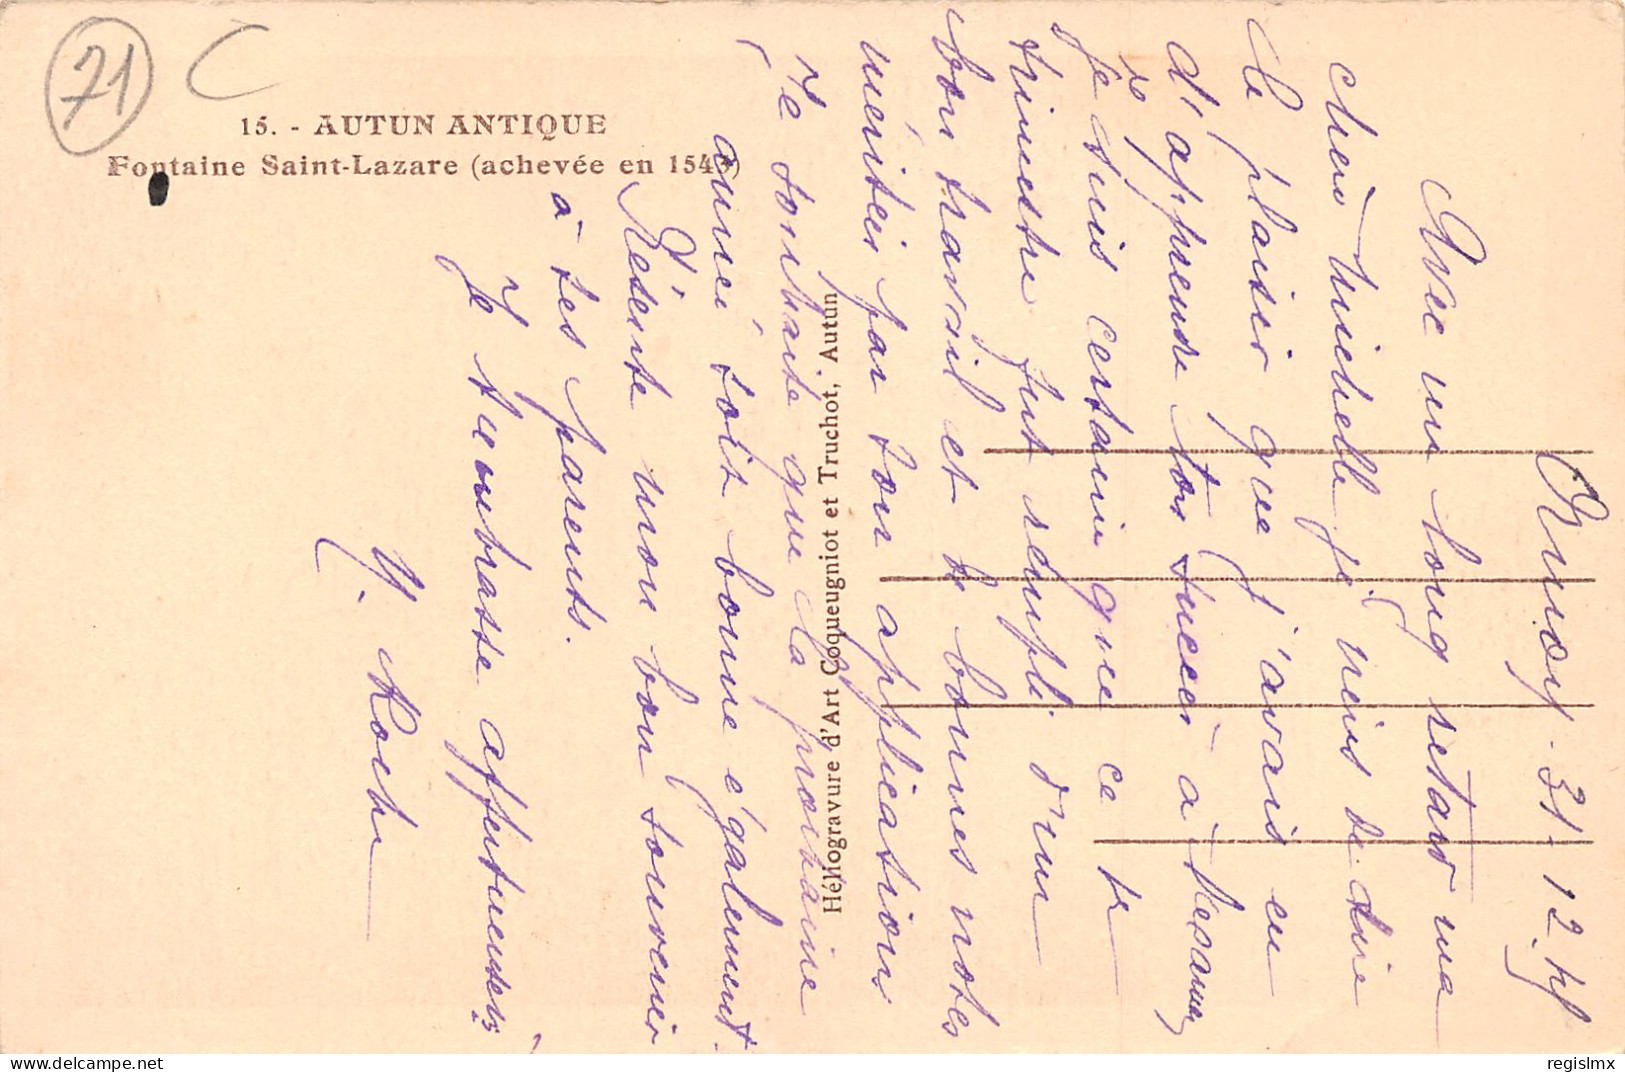 71
15. - AUTUN ANTIQUE
Fontaine Saint-Lazare (achevée en 1543)
Héliogravure d'Art Coqueugniot et Truchot, Autun
31-12
Avec un long retard ma
chère Michelle je viens te dire
le plaisir que j'avais eu
d'apprendre ton succès à l'examen
Je suis certain que ce 1e
trimestre fut rempli d'un
bon travail et de bonnes notes
méritées par ton application
Je souhaite que la prochaine
année soit bonne également.
Présente mon bon souvenir
à tes parents.
Je t'embrasse affectueusement
Roche
regislmx